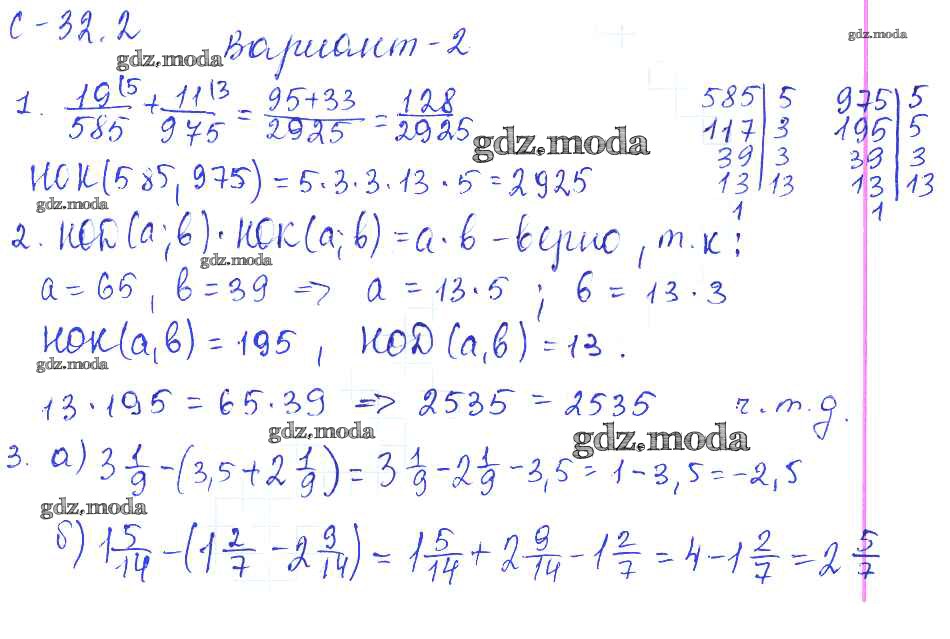 С-32.2
Вариант-2
gdz.moda
gdz.moda
1. 19(5/585 + 11(3/975 = 95+33/2925 = 128/2925
gdz.moda
585 | 5
117 | 3
39 | 3
13 | 13
1
975 | 5
195 | 5
39 | 3
13 | 13
1
НОК(585, 975) = 5·3·3·13·5 = 2925
gdz.moda
2. НОД(а;в)·НОК(а;в) = а·в - верно, т.к:
gdz.moda
а = 65, в = 39 => а = 13·5; в = 13·3
НОК(а,в) = 195, НОД(а,в) = 13.
gdz.moda
13·195 = 65·39 => 2535 = 2535 ч.т.д.
gdz.moda
gdz.moda
3. а) 3 1/9 - (3,5 + 2 1/9) = 3 1/9 - 2 1/9 - 3,5 = 1 - 3,5 = -2,5
gdz.moda
б) 1 5/14 - (1 2/7 - 2 9/14) = 1 5/14 + 2 9/14 - 1 2/7 = 4 - 1 2/7 = 2 5/7